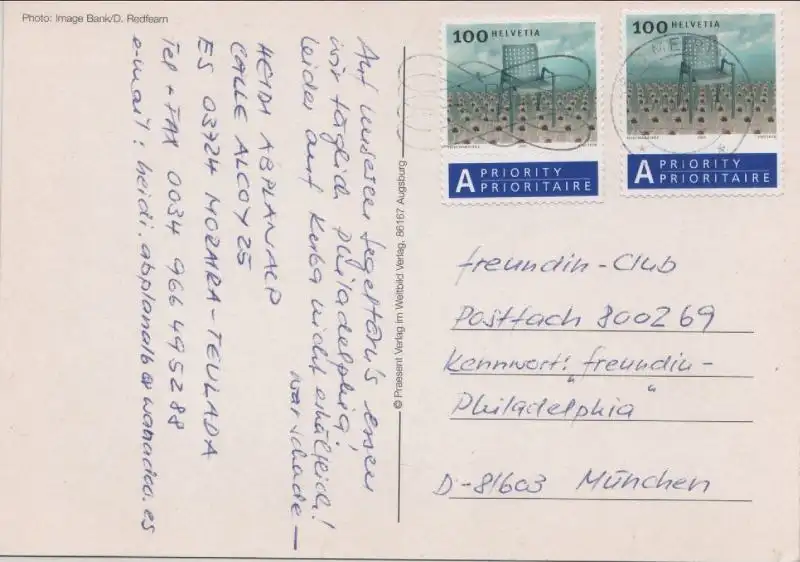 Photo: Image Bank/D. Redfearn
Auf unseren Segeltörns essen
wir täglich Philadelphia!
Leider auf Kerba nicht erhältlich!
war schade –
HEIDI ABPLANALP
CALLE ALCOY 25
ES 03724 MORAIRA-TEULADA
Tel + FAX 0034 966 495288
e-mail: heidi.abplanalb@wanadoo.es
© Praesent Verlag im Weltbild Verlag, 86167 Augsburg
100 HELVETIA
A PRIORITY
PRIORITAIRE
100 HELVETIA
A PRIORITY
PRIORITAIRE
freundin-Club
Postfach 800269
Kennwort: "freundin-
Philadelphia"
D-81603 München